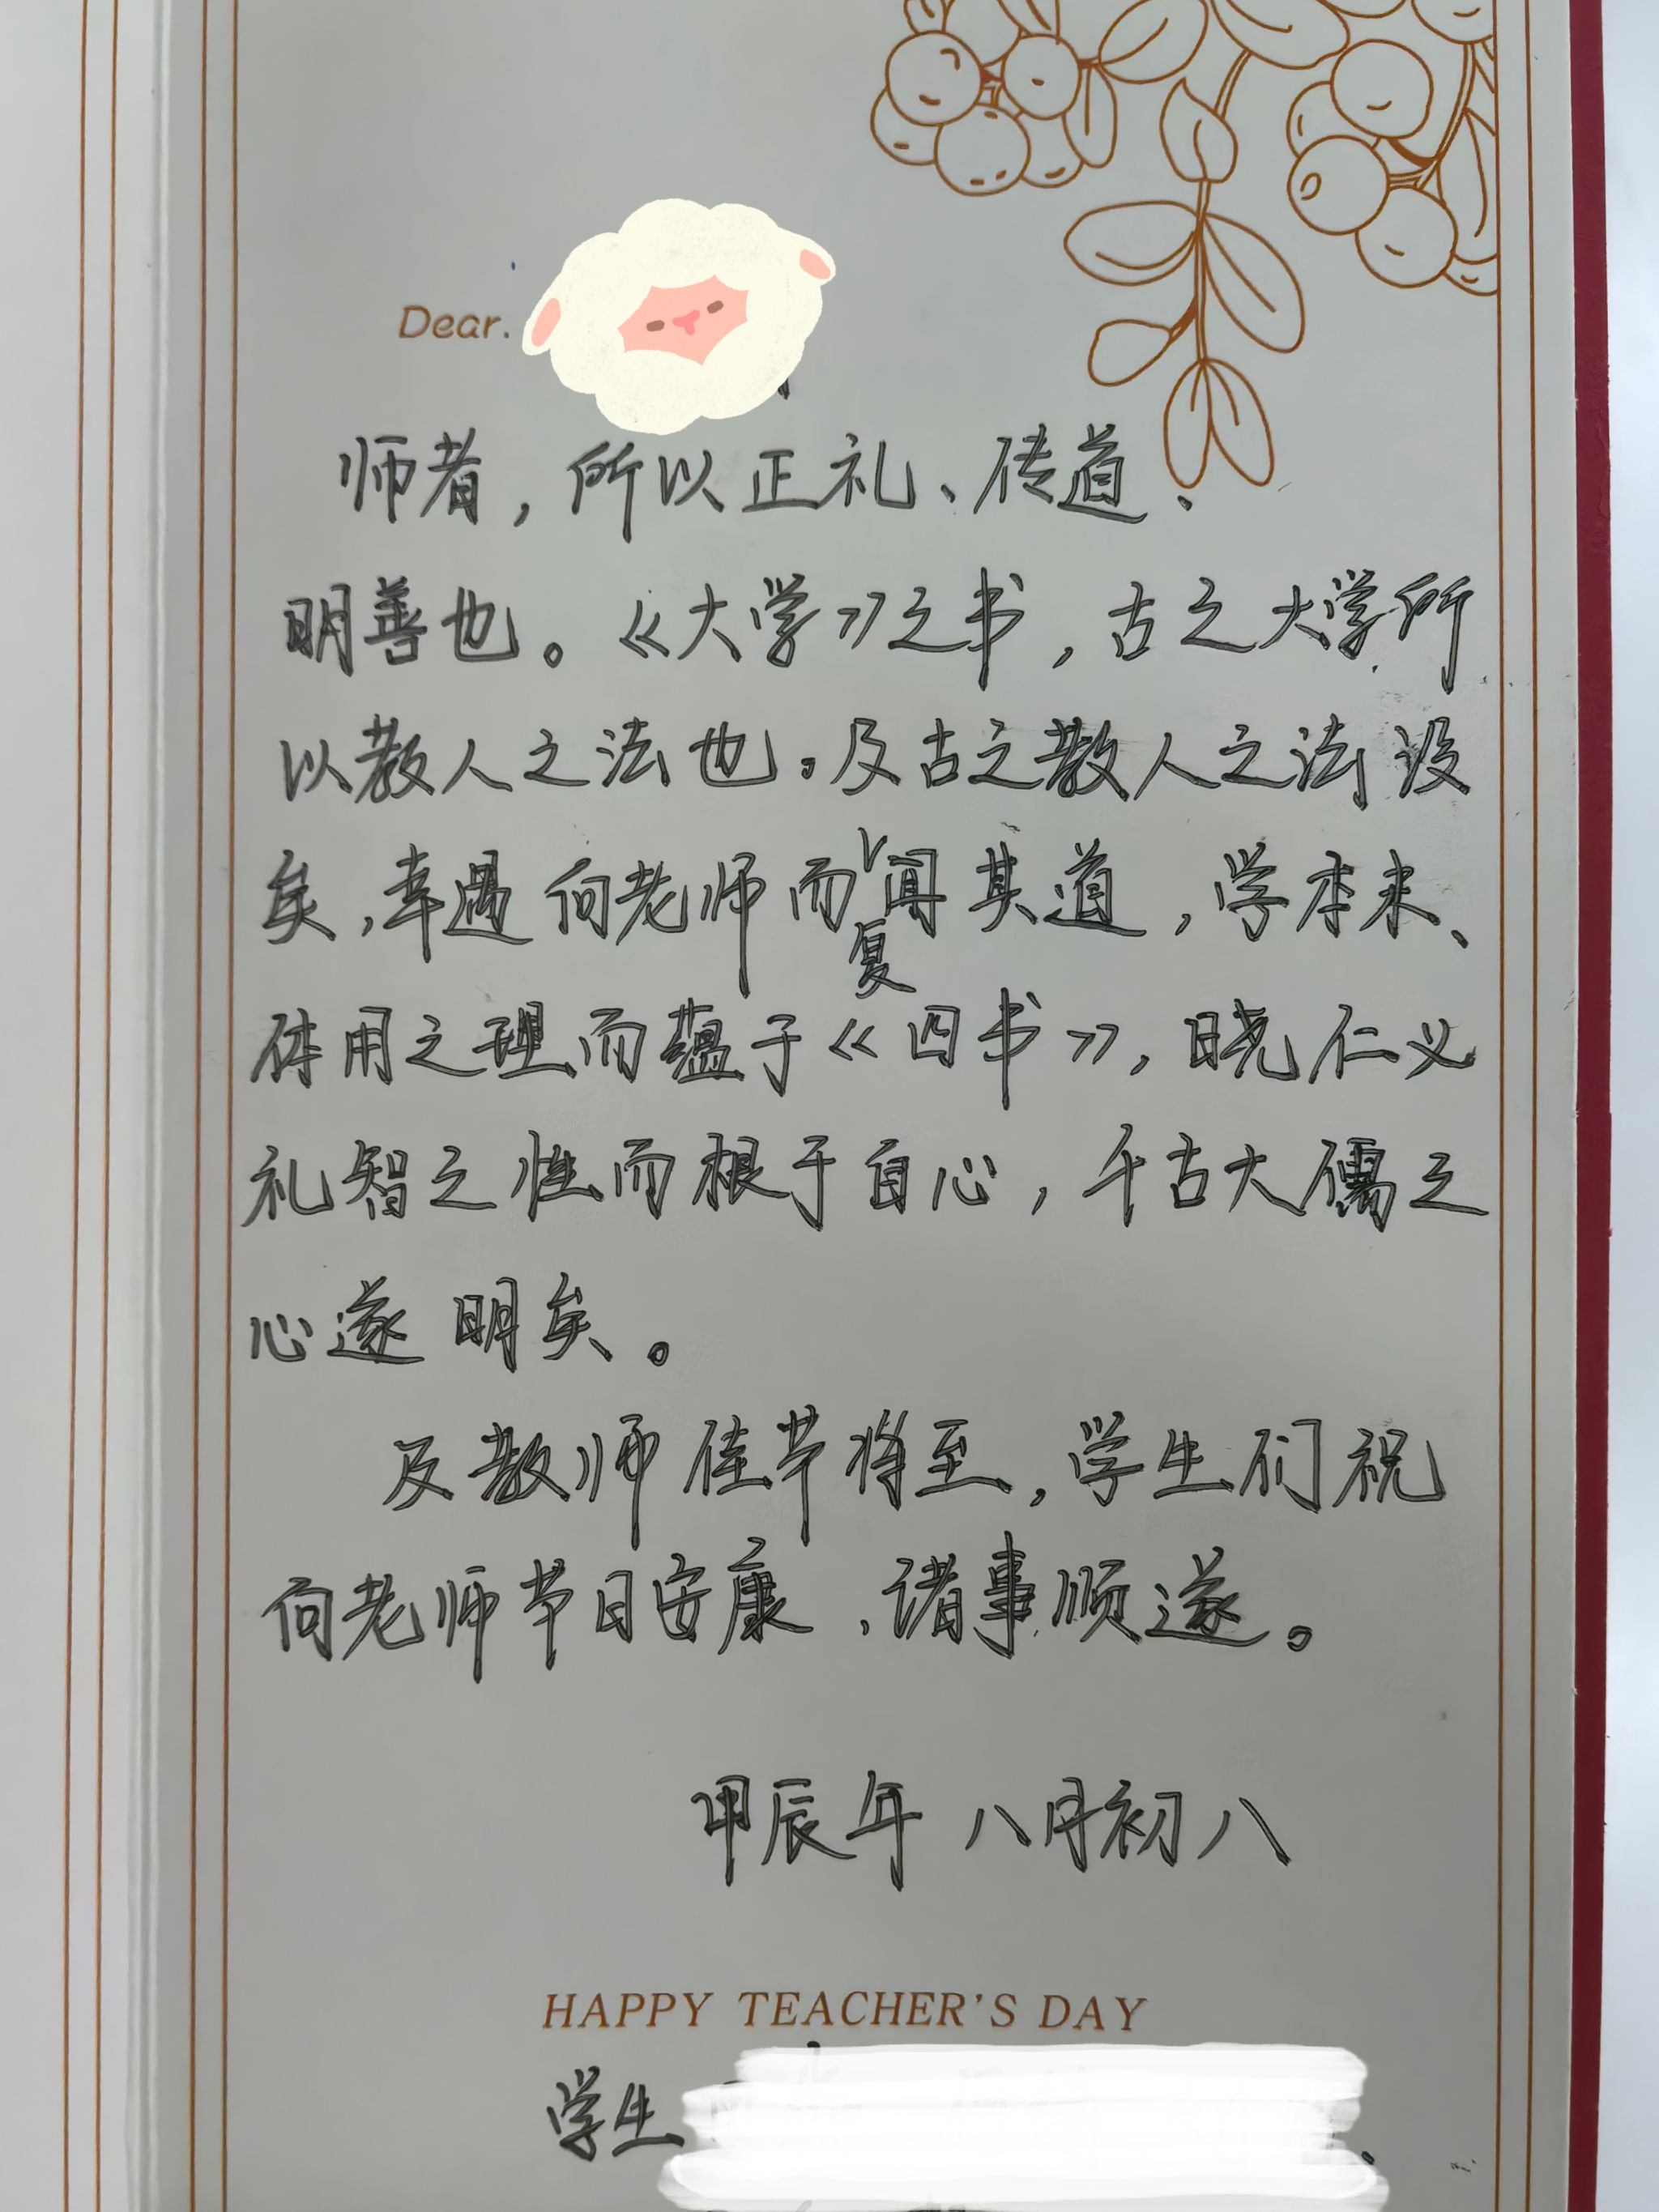 Dear.
师者，所以正礼、传道、
明善也。《大学》之书，古之大学所
以教人之法也。及古之教人之法没
矣，幸遇向老师而复闻其道，学本末、
体用之理而蕴于《四书》，晓仁义
礼智之性而根于自心，千古大儒之
心遂明矣。
及教师佳节将至，学生们祝
向老师节日安康、诸事顺遂。
甲辰年 八月初八
HAPPY TEACHER'S DAY
学生